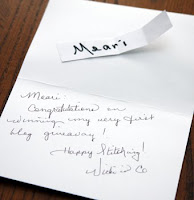 Meari
Meari:
Congratulations on
winning my very first
blog giveaway!
Happy Stitching!